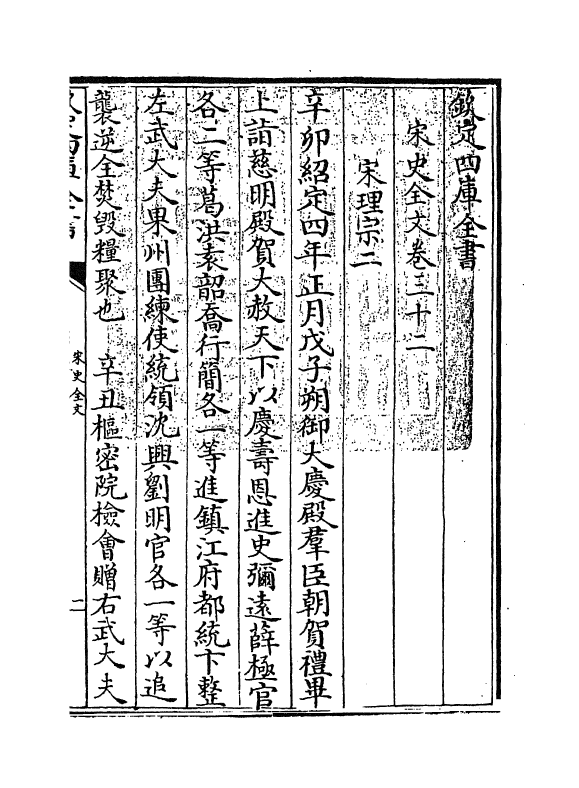 欽定四庫全書
宋史全文卷三十二
宋理宗二
辛卯紹定四年正月戊子朔御大慶殿羣臣朝賀禮畢
上詣慈明殿賀大赦天下以慶壽恩進史彌遠薛極官
各二等葛洪袁韶喬行簡各一等進鎮江府都統卞整
左武大夫果州團練使統領沈興劉明官各一等以追
襲逆全焚毁糧聚也 辛丑樞密院檢會贈右武大夫
宋史全文